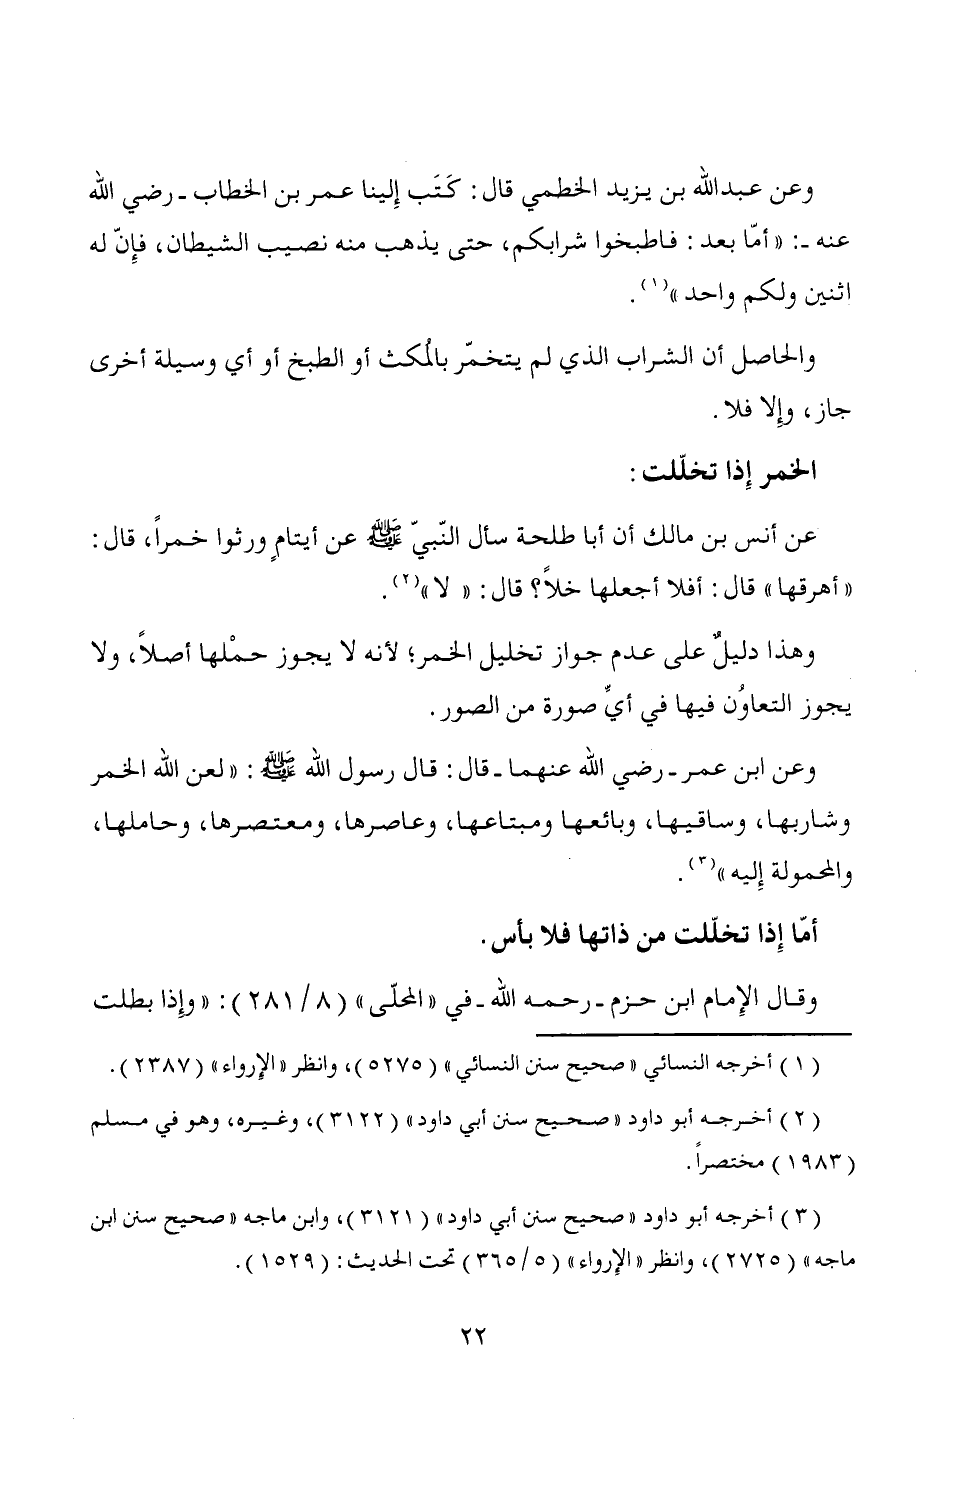 وعن عبدالله بن يزيد الخطمي قال: كَتَب إلينا عمر بن الخطاب ـ رضي الله
عنه ـ: « أمّا بعد : فاطبخوا شرابكم، حتى يذهب منه نصيب الشيطان، فإِنّ له
اثنين ولكم واحد »(١).
والحاصل أن الشراب الذي لم يتخمّر بالمُكث أو الطبخ أو أي وسيلة أخرى
جاز، وإِلا فلا .
الخمر إِذا تخلّلت :
عن أنس بن مالك أن أبا طلحة سأل النّبيّ ﷺ عن أيتامٍ ورثوا خمراً، قال:
« أهرقها » قال : أفلا أجعلها خلاً؟ قال : « لا »(٢).
وهذا دليلٌ على عدم جواز تخليل الخمر؛ لأنه لا يجوز حمْلها أصلاً، ولا
يجوز التعاوُن فيها في أيِّ صورة من الصور .
وعن ابن عمر ـ رضي الله عنهما ـ قال : قال رسول الله ﷺ : « لعن الله الخمر
وشاربها، وساقيها، وبائعها ومبتاعها، وعاصرها، ومعتصرها، وحاملها،
والمحمولة إِليه »(٣).
أمّا إِذا تخلّلت من ذاتها فلا بأس.
وقال الإِمام ابن حزم ـ رحمه الله ـ في « المحلّى » ( ٨ / ٢٨١ ) : « وإِذا بطلت
( ١ ) أخرجه النسائي « صحيح سنن النسائي » ( ٥٢٧٥ )، وانظر « الإِرواء » ( ٢٣٨٧ ).
( ٢ ) أخرجه أبو داود « صحيح سنن أبي داود » ( ٣١٢٢ )، وغيره، وهو في مسلم
( ١٩٨٣ ) مختصراً .
( ٣ ) أخرجه أبو داود « صحيح سنن أبي داود » ( ٣١٢١ )، وابن ماجه « صحيح سنن ابن
ماجه » ( ٢٧٢٥ )، وانظر « الإِرواء » ( ٥ / ٣٦٥ ) تحت الحديث : ( ١٥٢٩ ).
٢٢